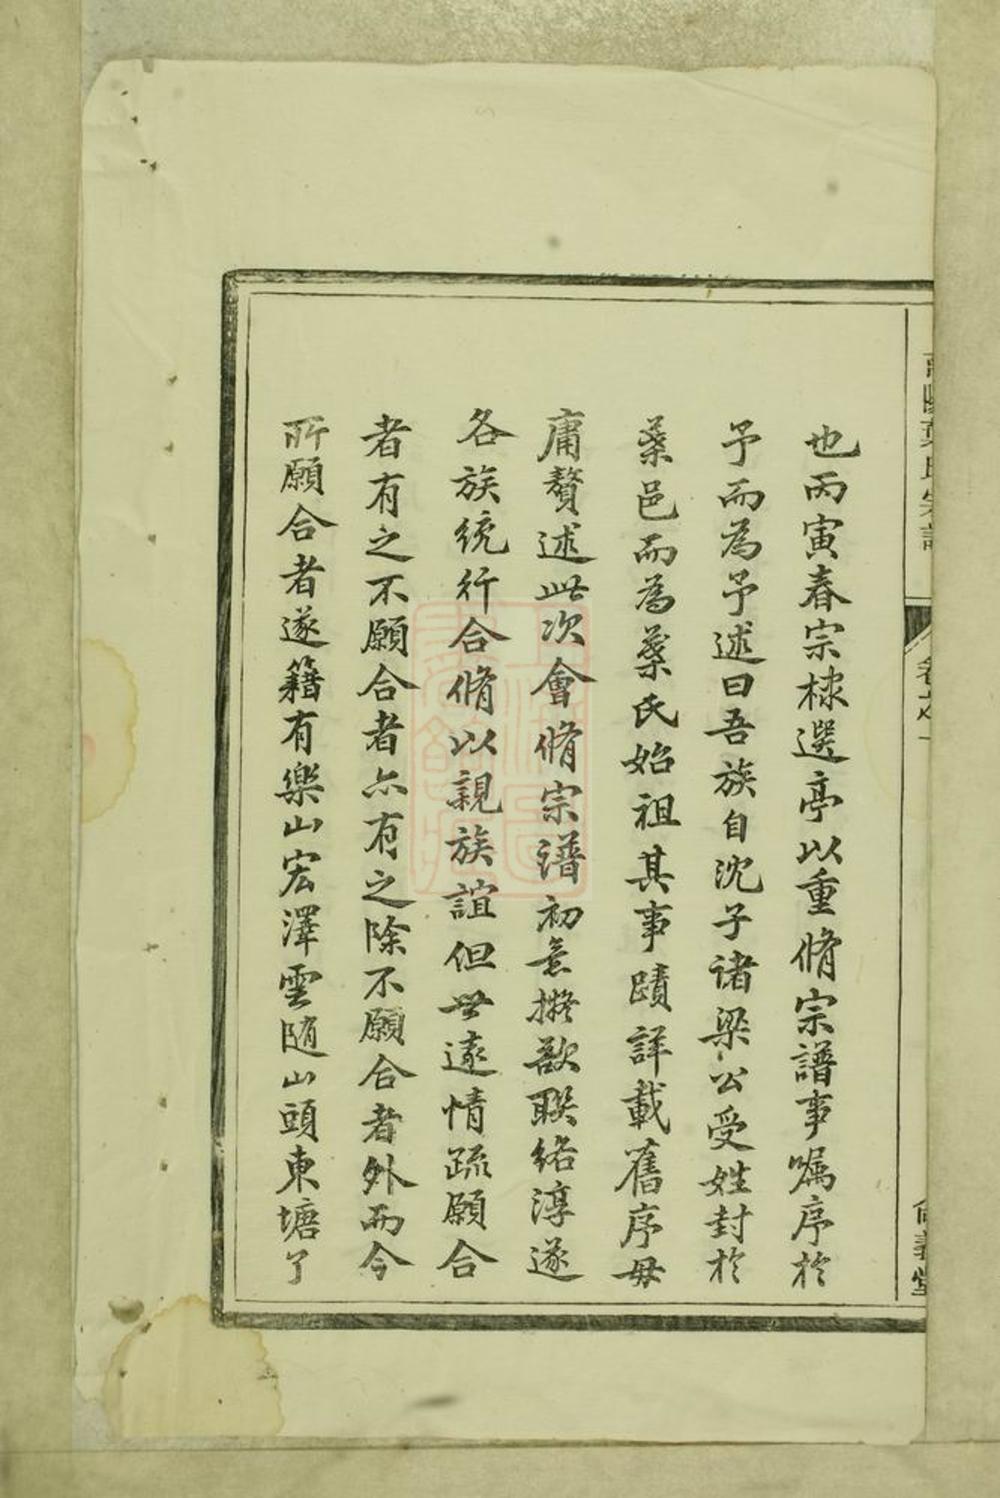 也丙寅春宗棣選亭以重脩宗譜事嘱序於
予而為予述曰吾族自沈子诸梁公受姓封於
葉邑而為葉氏始祖其事蹟詳載舊序毋
庸贅述此次會脩宗譜初意擬欲聯絡淳遂
各族统行合脩以親族誼但世遠情疏願合
者有之不願合者亦有之除不願合者外而今
所願合者遂籍有樂山宏澤雲随山頭東塘了
氏宗譜
卷之一
尚義堂